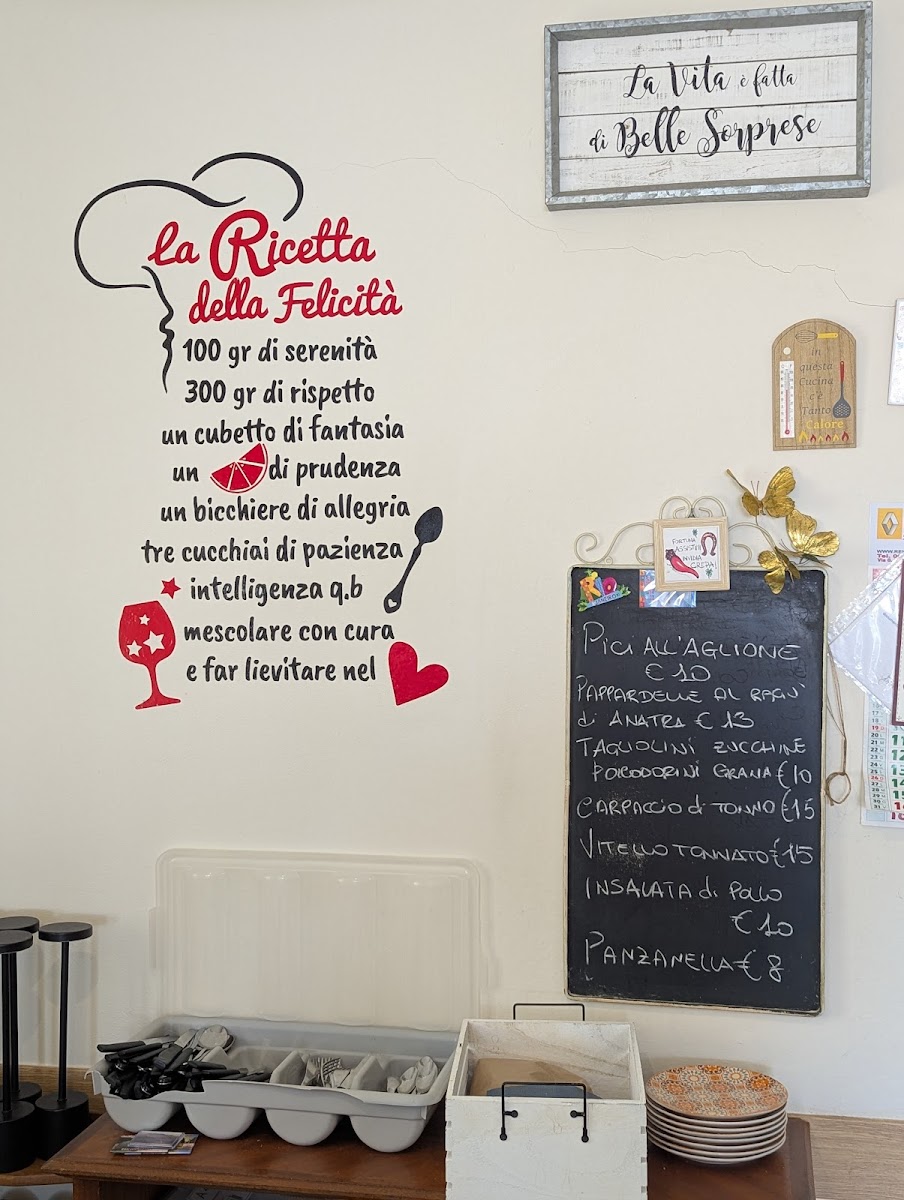 La Vita è fatta
di Belle Sorprese
la Ricetta
della Felicità
100 gr di serenità
300 gr di rispetto
un cubetto di fantasia
un di prudenza
un bicchiere di allegria
tre cucchiai di pazienza
intelligenza q.b
mescolare con cura
e far lievitare nel
in
questa
Cucina
c'è
Tanto
Calore
FORTUNA
ASSISTIMI
INVIDIA
CREPA!
PICI ALL'AGLIONE
€ 10
PAPPARDELLE AL RAGÙ
di ANATRA € 13
TAGLIOLINI ZUCCHINE
POMODORINI GRANA €10
CARPACCIO di TONNO €15
VITELLO TONNATO €15
INSALATA di POLLO
€ 10
PANZANELLA € 8